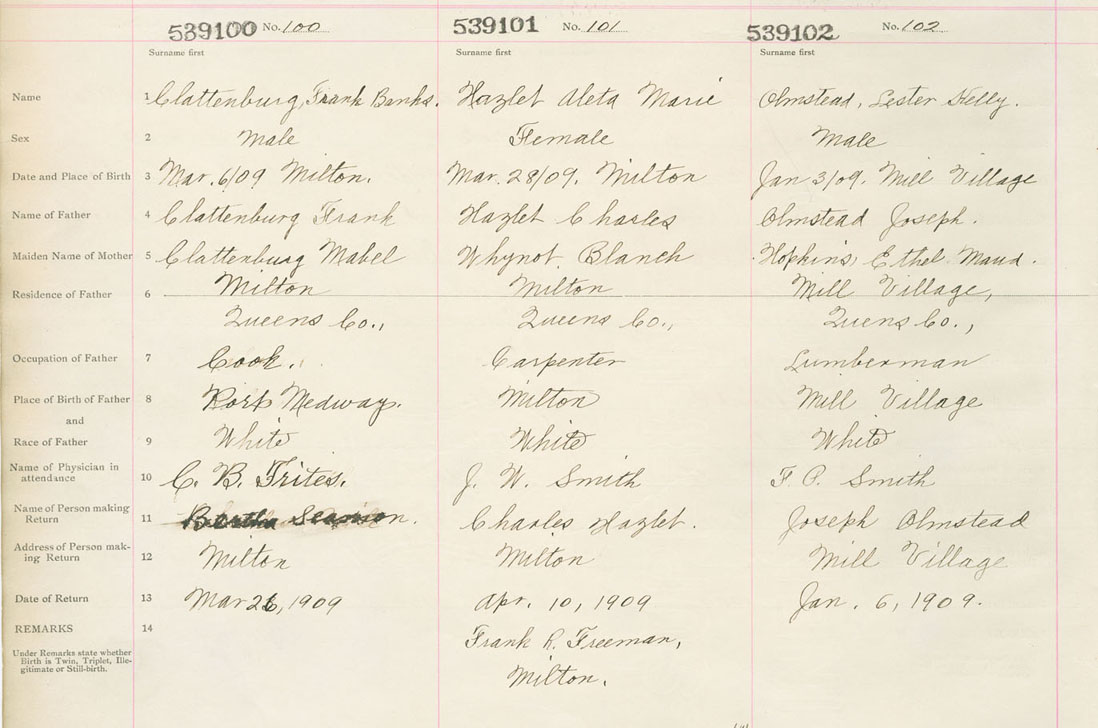 539100 No. 100 539101 No. 101 539102 No. 102
Surname first Surname first Surname first
Name 1 Clattenburg, Frank Banks. Hazlet Aleta Marie Olmstead, Lester Kelly.
Sex 2 Male Female Male
Date and Place of Birth 3 Mar. 6/09 Milton. Mar. 28/09. Milton Jan 3/09. Mill Village
Name of Father 4 Clattenburg Frank Hazlet Charles Olmstead Joseph.
Maiden Name of Mother 5 Clattenburg Mabel Whynot Blanch Hopkins, Ethel Maud.
Residence of Father 6 Milton Milton Mill Village,
Queens Co., Queens Co., Quens Co.,
Occupation of Father 7 Cook. Carpenter Lumberman
Place of Birth of Father 8 Port Medway. Milton Mill Village
and
Race of Father 9 White White White
Name of Physician in
attendance 10 C. B. Trites. J. W. Smith F. P. Smith
Name of Person making
Return 11 Bertha Charles Hazlet. Joseph Olmstead
Address of Person mak-
ing Return 12 Milton Milton Mill Village
Date of Return 13 Mar 26, 1909 Apr. 10, 1909 Jan. 6, 1909.
REMARKS 14 Frank R. Freeman,
Under Remarks state whether
Birth is Twin, Triplet, Ille-
gitimate or Still-birth.
Milton.